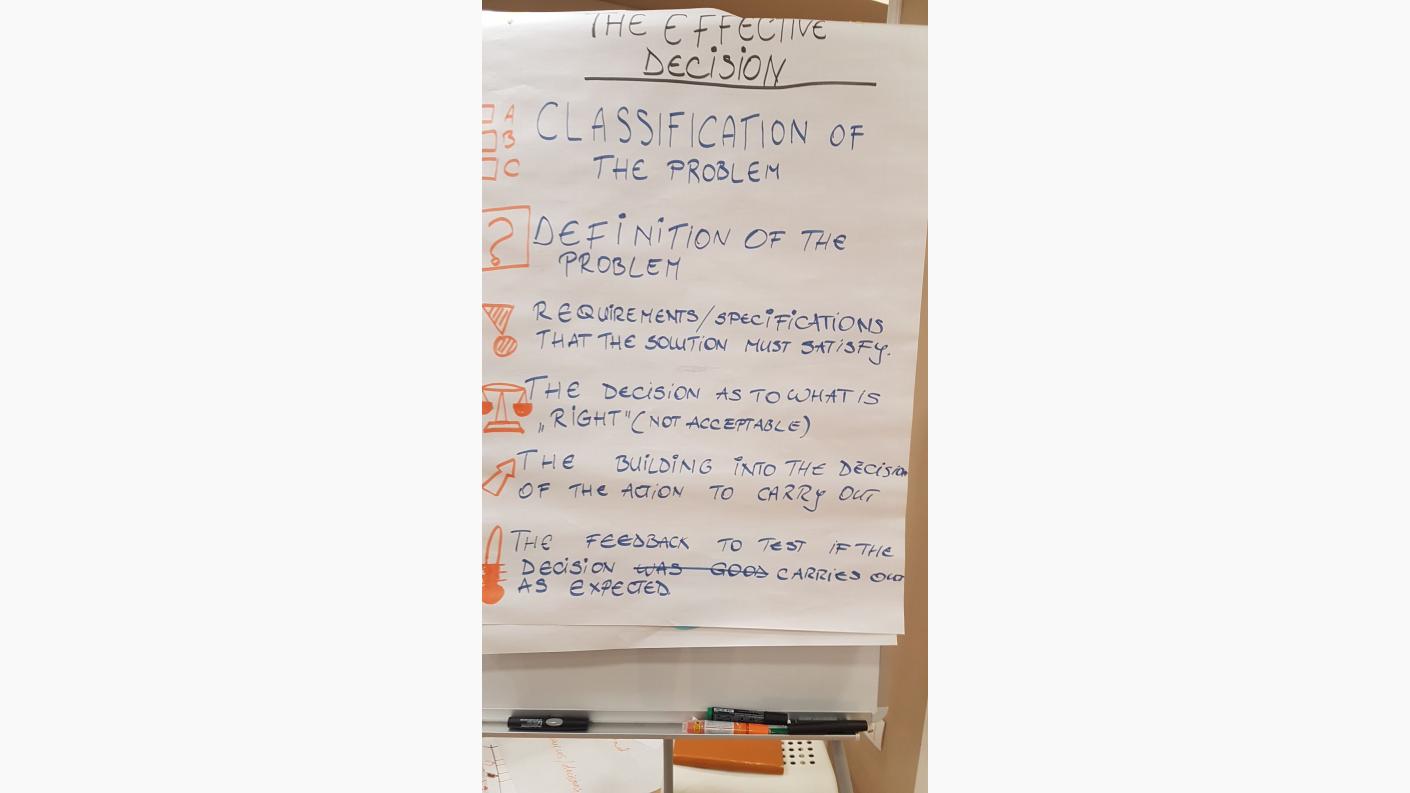 THE EFFECTIVE
DECISION
A
B
C
CLASSIFICATION OF
THE PROBLEM
?
DEFINITION OF THE
PROBLEM
REQUIREMENTS/SPECIFICATIONS
THAT THE SOLUTION MUST SATISFY.
THE DECISION AS TO WHAT IS
„RIGHT" (NOT ACCEPTABLE)
THE BUILDING INTO THE DECISION
OF THE ACTION TO CARRY OUT
THE FEEDBACK TO TEST IF THE
DECISION WAS GOOD CARRIES OUT
AS EXPECTED